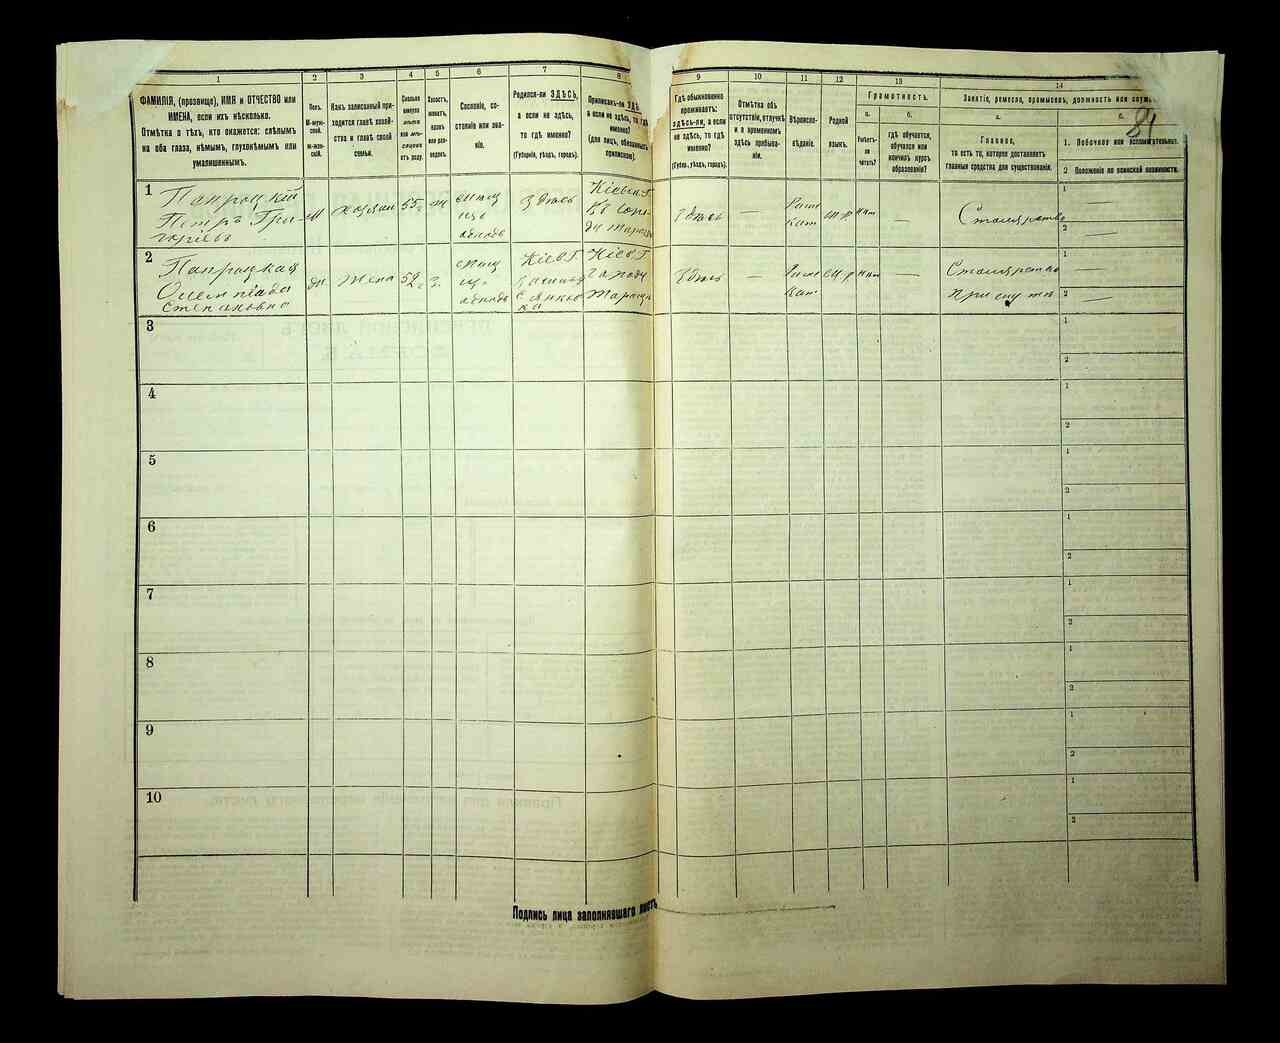 84
1
2
3
4
5
6
7
8
9
10
11
12
13
14
ФАМИЛІЯ, (прозвище), ИМЯ и ОТЧЕСТВО или
ИМЕНА, если ихъ нѣсколько.
Отмѣтка о тѣхъ, кто окажется: слѣпымъ
на оба глаза, нѣмымъ, глухонѣмымъ или
умалишеннымъ.
Полъ.
М-мужской.
Ж-женскій.
Какъ записанный при-
ходится главѣ хозяй-
ства и главѣ своей
семьи.
Сколько
минуло
лѣтъ
или мѣ-
сяцевъ
отъ роду.
Холостъ,
женатъ,
вдовъ
или раз-
веденъ.
Сословіе, со-
стояніе или зва-
ніе.
Родился-ли ЗДѢСЬ,
а если не здѣсь,
то гдѣ именно?
(Губернія, уѣздъ, городъ).
Приписанъ-ли ЗДѢСЬ,
а если не здѣсь, то гдѣ
именно?
(для лицъ, обязанныхъ
припискою).
Гдѣ обыкновенно
проживаетъ:
здѣсь-ли, а если
не здѣсь, то гдѣ
именно?
(Губер., уѣздъ, городъ).
Отмѣтка объ
отсутствіи, отлучкѣ
и о временномъ
здѣсь пребыва-
ніи.
Вѣроиспо-
вѣданіе.
Родной
языкъ.
Грамотность.
а.
б.
Умѣетъ-
ли
читать?
гдѣ обучается,
обучался или
кончилъ курсъ
образованія?
Занятіе, ремесло, промыселъ, должность или служба.
а.
б.
Главное,
то есть то, которое доставляетъ
главныя средства для существованія.
1. Побочное или вспомогательное.
2 Положеніе по воинской повинности.
1
Папроцкій
Петръ Гри-
горіевъ
М
хозяин
55
ж
Здѣсь
Кіевск Г.
Здѣсь
—
Рим
Кат
Столярство
1 —
2 —
2
Папроцкая
Олемпіада
Степановна
жена
52
Кіев Г.
Кіев Г.
Здѣсь
—
Рим
Кат
—
Столярство
при мужѣ
1 —
2 —
3
1
2
4
1
2
5
1
2
6
1
2
7
1
2
8
1
2
9
1
2
10
1
2
Подпись лица заполнявшаго листъ